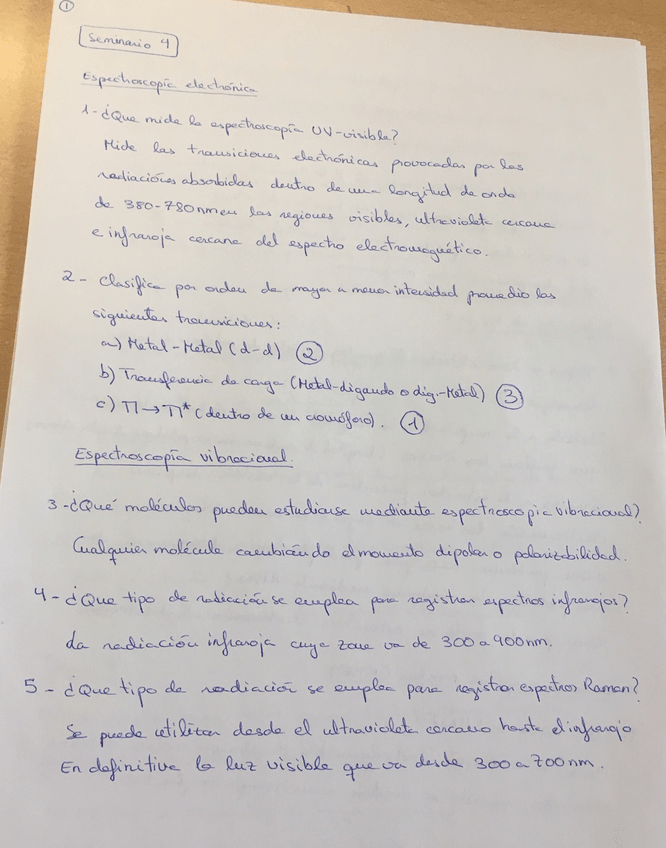 1
Seminario 4
Espectroscopía electrónica
1-¿Que mide la espectroscopía UV-visible?
Mide las transiciones electrónicas provocadas por las
radiaciones absorbidas dentro de una longitud de onda
de 380-780nm en las regiones visibles, ultravioleta cercana
e infraroja cercana del espectro electromagnético.
2- Clasifica por orden de mayor a menor intensidad promedio las
siguientes transiciones:
a) Metal-Metal (d-d) 2
b) Transferencia de carga (Metal-Ligando o Lig.-Metal) 3
c) Π→Π* (dentro de un cromóforo). 1
Espectroscopía vibracional.
3-¿Qué moléculas pueden estudiarse mediante espectroscopia vibracional?
Cualquier molécula cambiando el momento dipolar o polarizabilidad.
4-¿Que tipo de radiación se emplea para registrar espectros infrarojos?
La radiación infraroja cuya zona va de 300 a 900nm.
5-¿Que tipo de radiación se emplea para registrar espectros Raman?
Se puede utilizar desde el ultravioleta cercano hasta el infrarojo
En definitiva la luz visible que va desde 300 a 700nm.